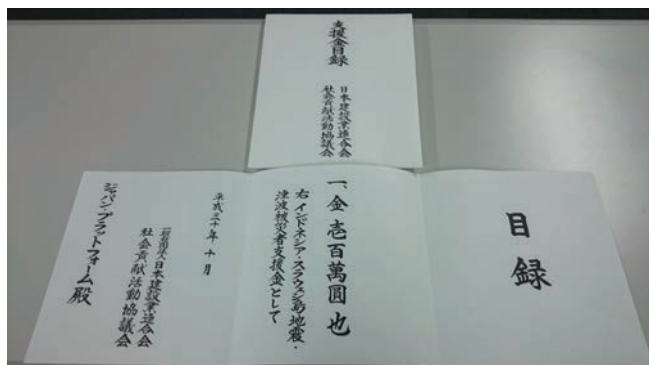 支援金目録
日本建設業連合会
社会貢献活動協議会
目録
一、金壱百萬圓也
右 インドネシア・スラウェシ島地震・
津波被災者支援金として
平成三十年十月
一般社団法人日本建設業連合会
社会貢献活動協議会
ジャパン・プラットフォーム殿